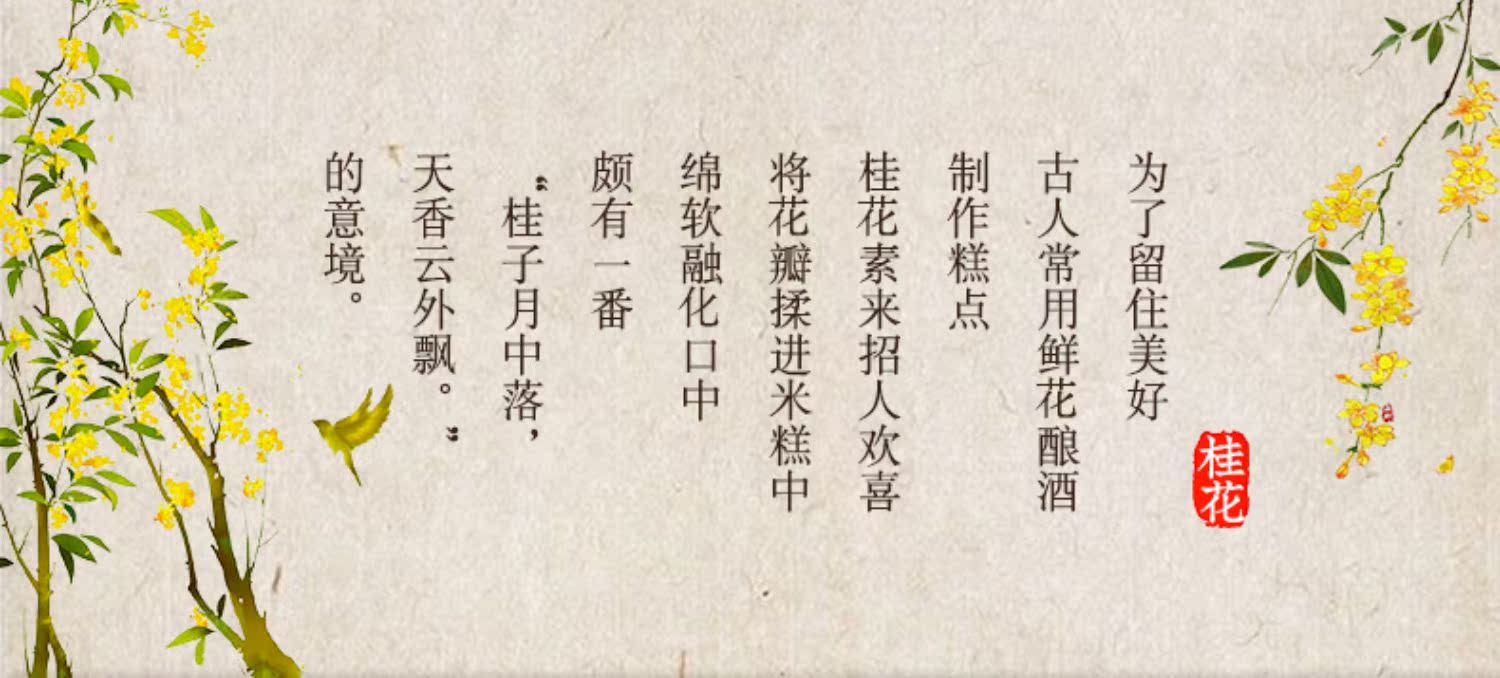 为了留住美好
古人常用鲜花酿酒
制作糕点
桂花素来招人欢喜
将花瓣揉进米糕中
绵软融化口中
颇有一番
“桂子月中落，
天香云外飘。”
的意境。
桂花